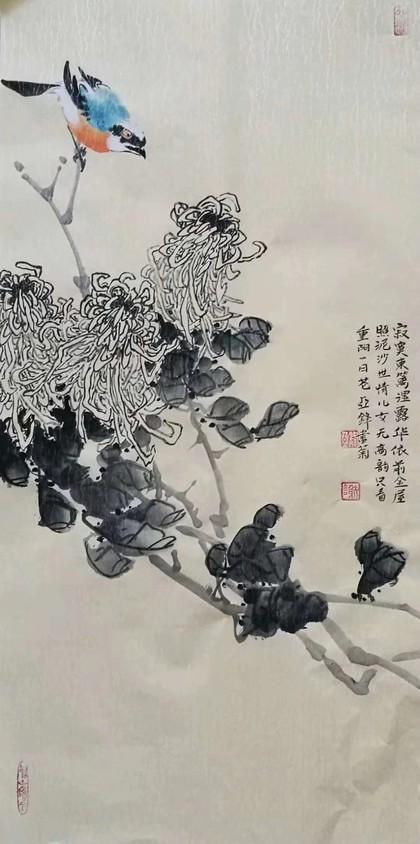 寂寞東篱湿露华依前金屋
照泥沙世情儿女无高韵只看
重阳一日花亚锋菊